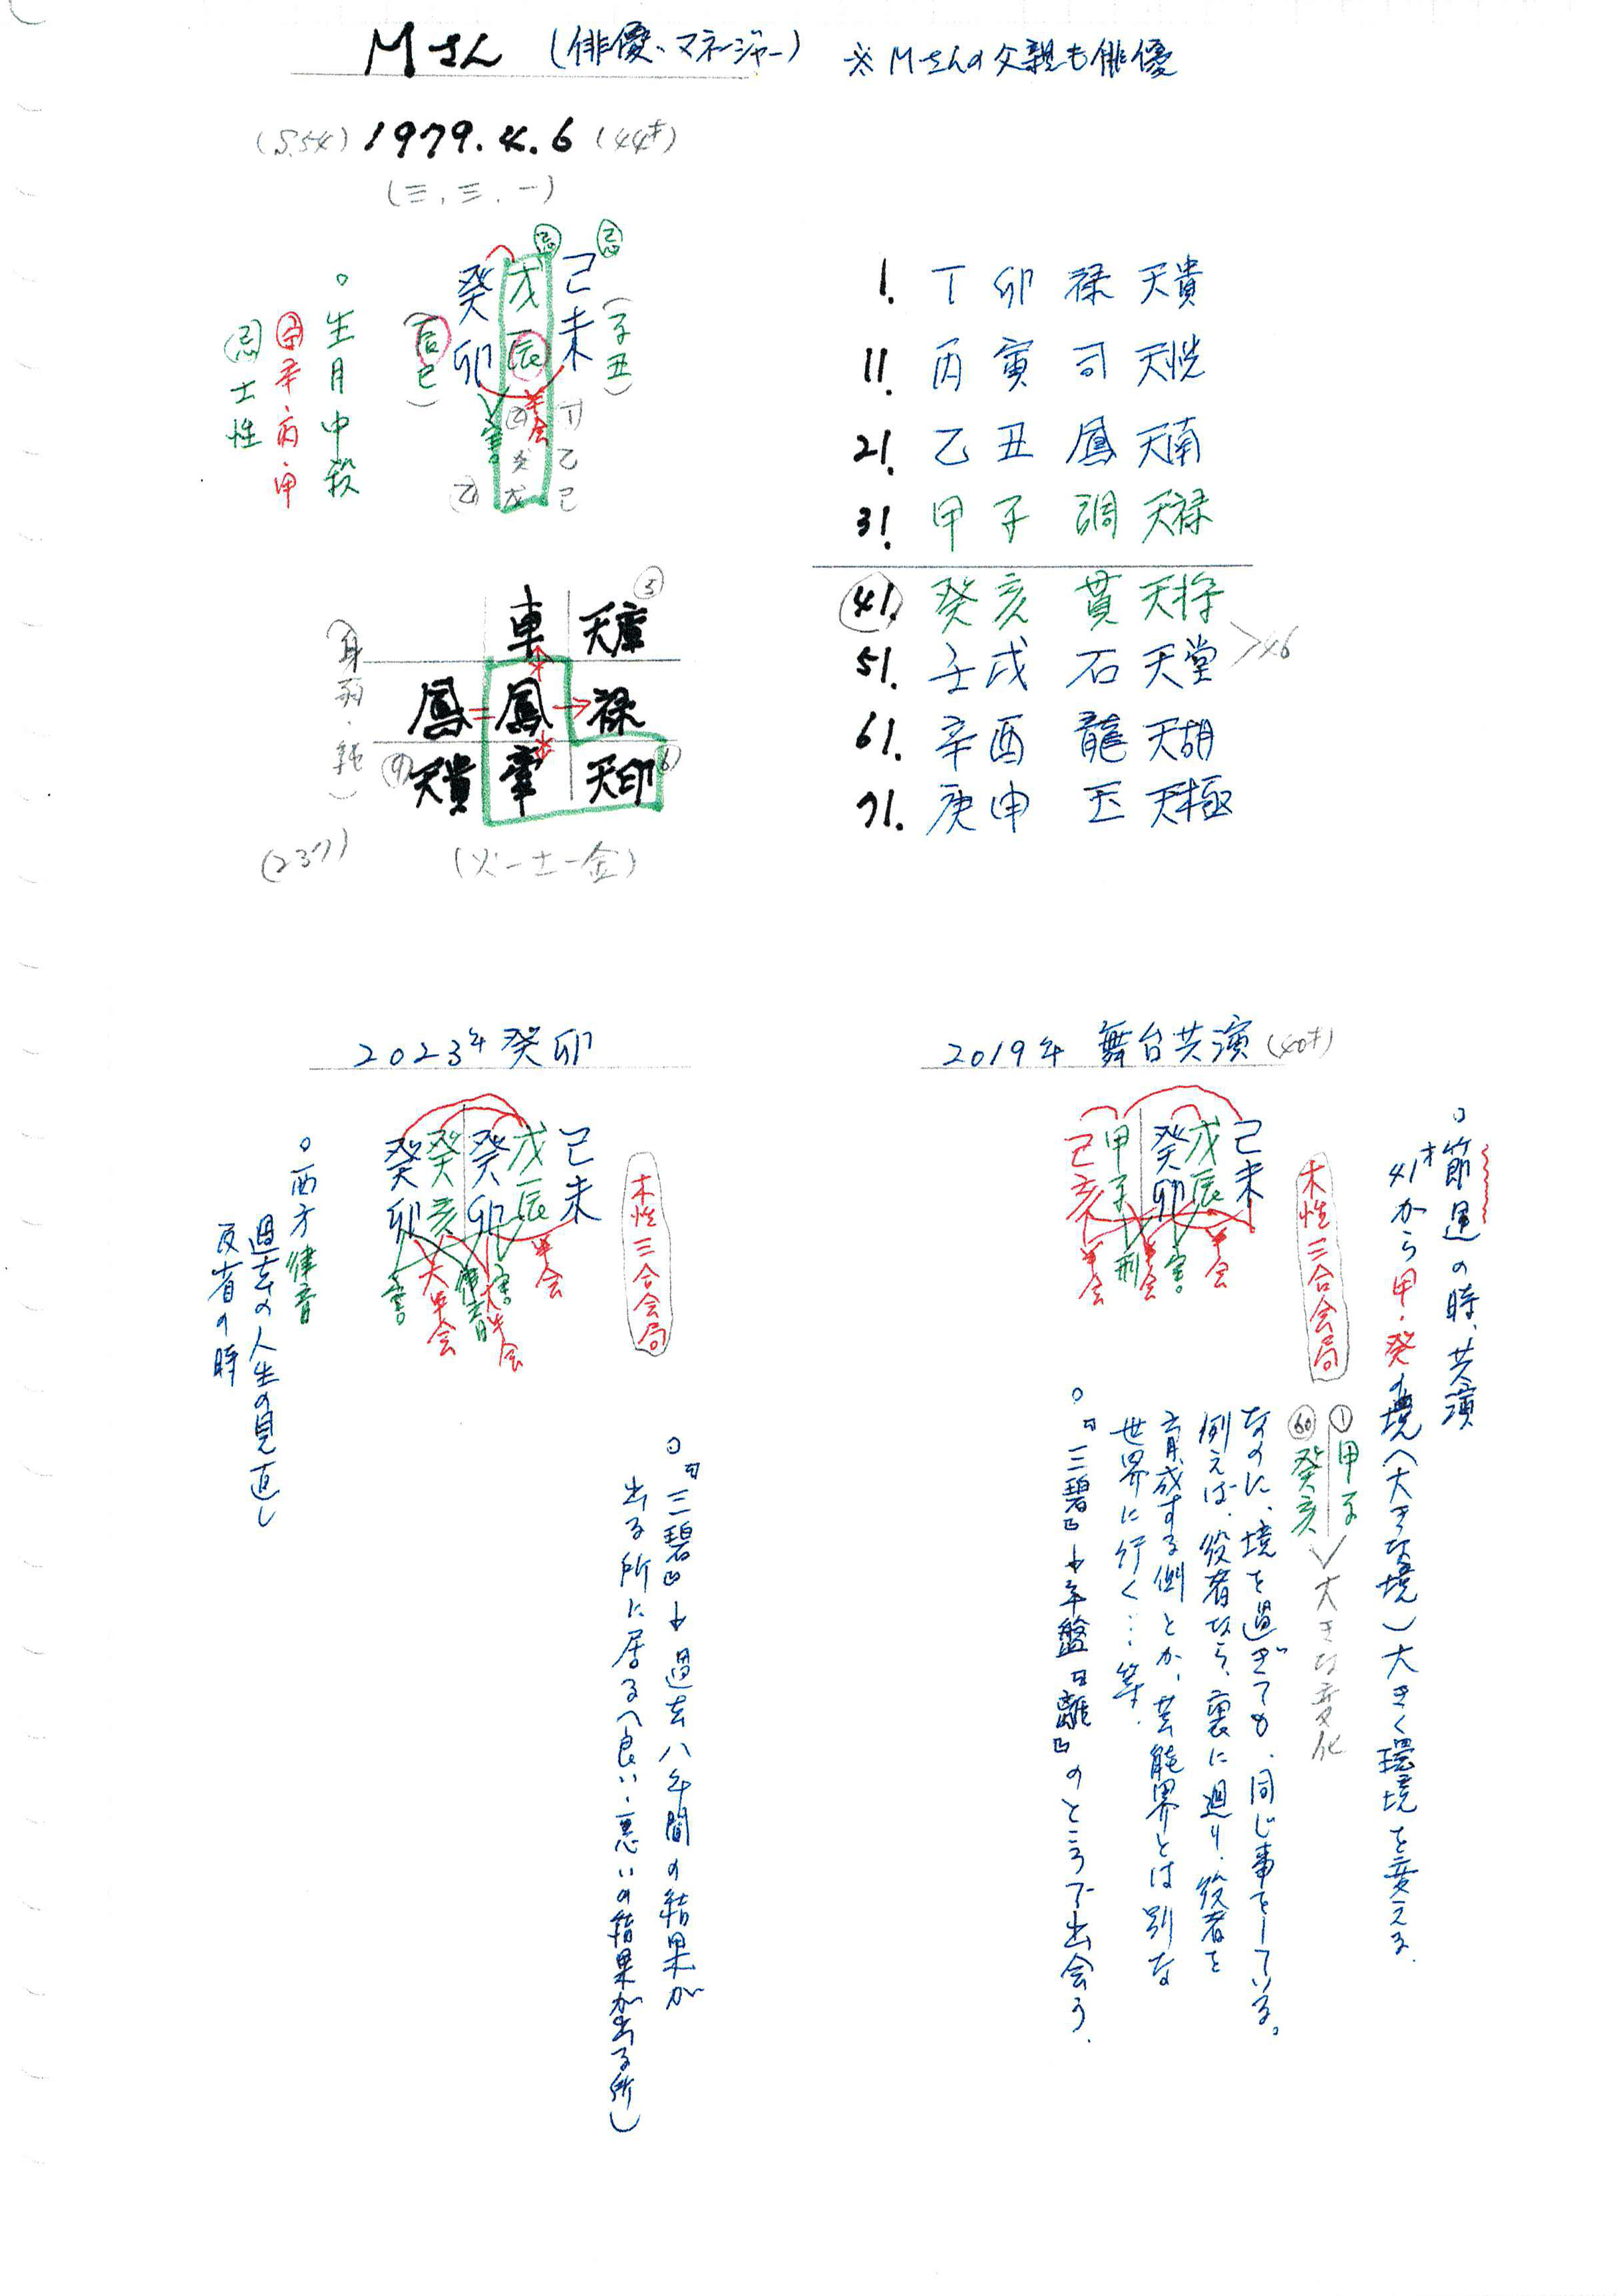 Mさん (俳優、マネージャー) ※Mさんの父親も俳優
(S.54) 1979.4.6 (44才)
(三.三.一)
忌 忌
癸 戊 己
卯 辰 未
(辰巳)
(子丑)
害 半会
乙 癸 丁
戊 乙
己
○生月中殺
甲辛丙甲
忌 土性
車 天庫 3
鳳 鳳 禄
9 天貴 牽 天印 6
(身弱・純)
(237)
(火-土-金)
1. 丁卯 禄 天貴
11. 丙寅 司 天恍
21. 乙丑 鳳 天南
31. 甲子 調 天禄
41. 癸亥 貫 天将
51. 壬戌 石 天堂
>46
61. 辛酉 龍 天胡
71. 庚申 玉 天極
2023年癸卯
癸 癸 癸 戊 己
卯 亥 卯 辰 未
害 大半会 律音 大半会 害 半会
木性三合会局
○西方律音
過去の人生の見直し
反省の時
○『三碧』→過去八年間の結果が
出る所に居る(良い、悪いの結果が出る所)
2019年 舞台共演 (40才)
己 甲 癸 戊 己
亥 子 卯 辰 未
半会 刑 半会 害 半会
木性三合会局
○節運の時、共演
41才から甲・癸の境(大きな境)大きく環境を変える.
① 甲子
60 癸亥
大きな変化
なのに、境を過ぎても、同じ事をしている。
例えば、役者なら、裏に廻り、役者を
育成する側とか、芸能界とは別な
世界に行く…等.
○『三碧』→年盤『離』のところで出会う.